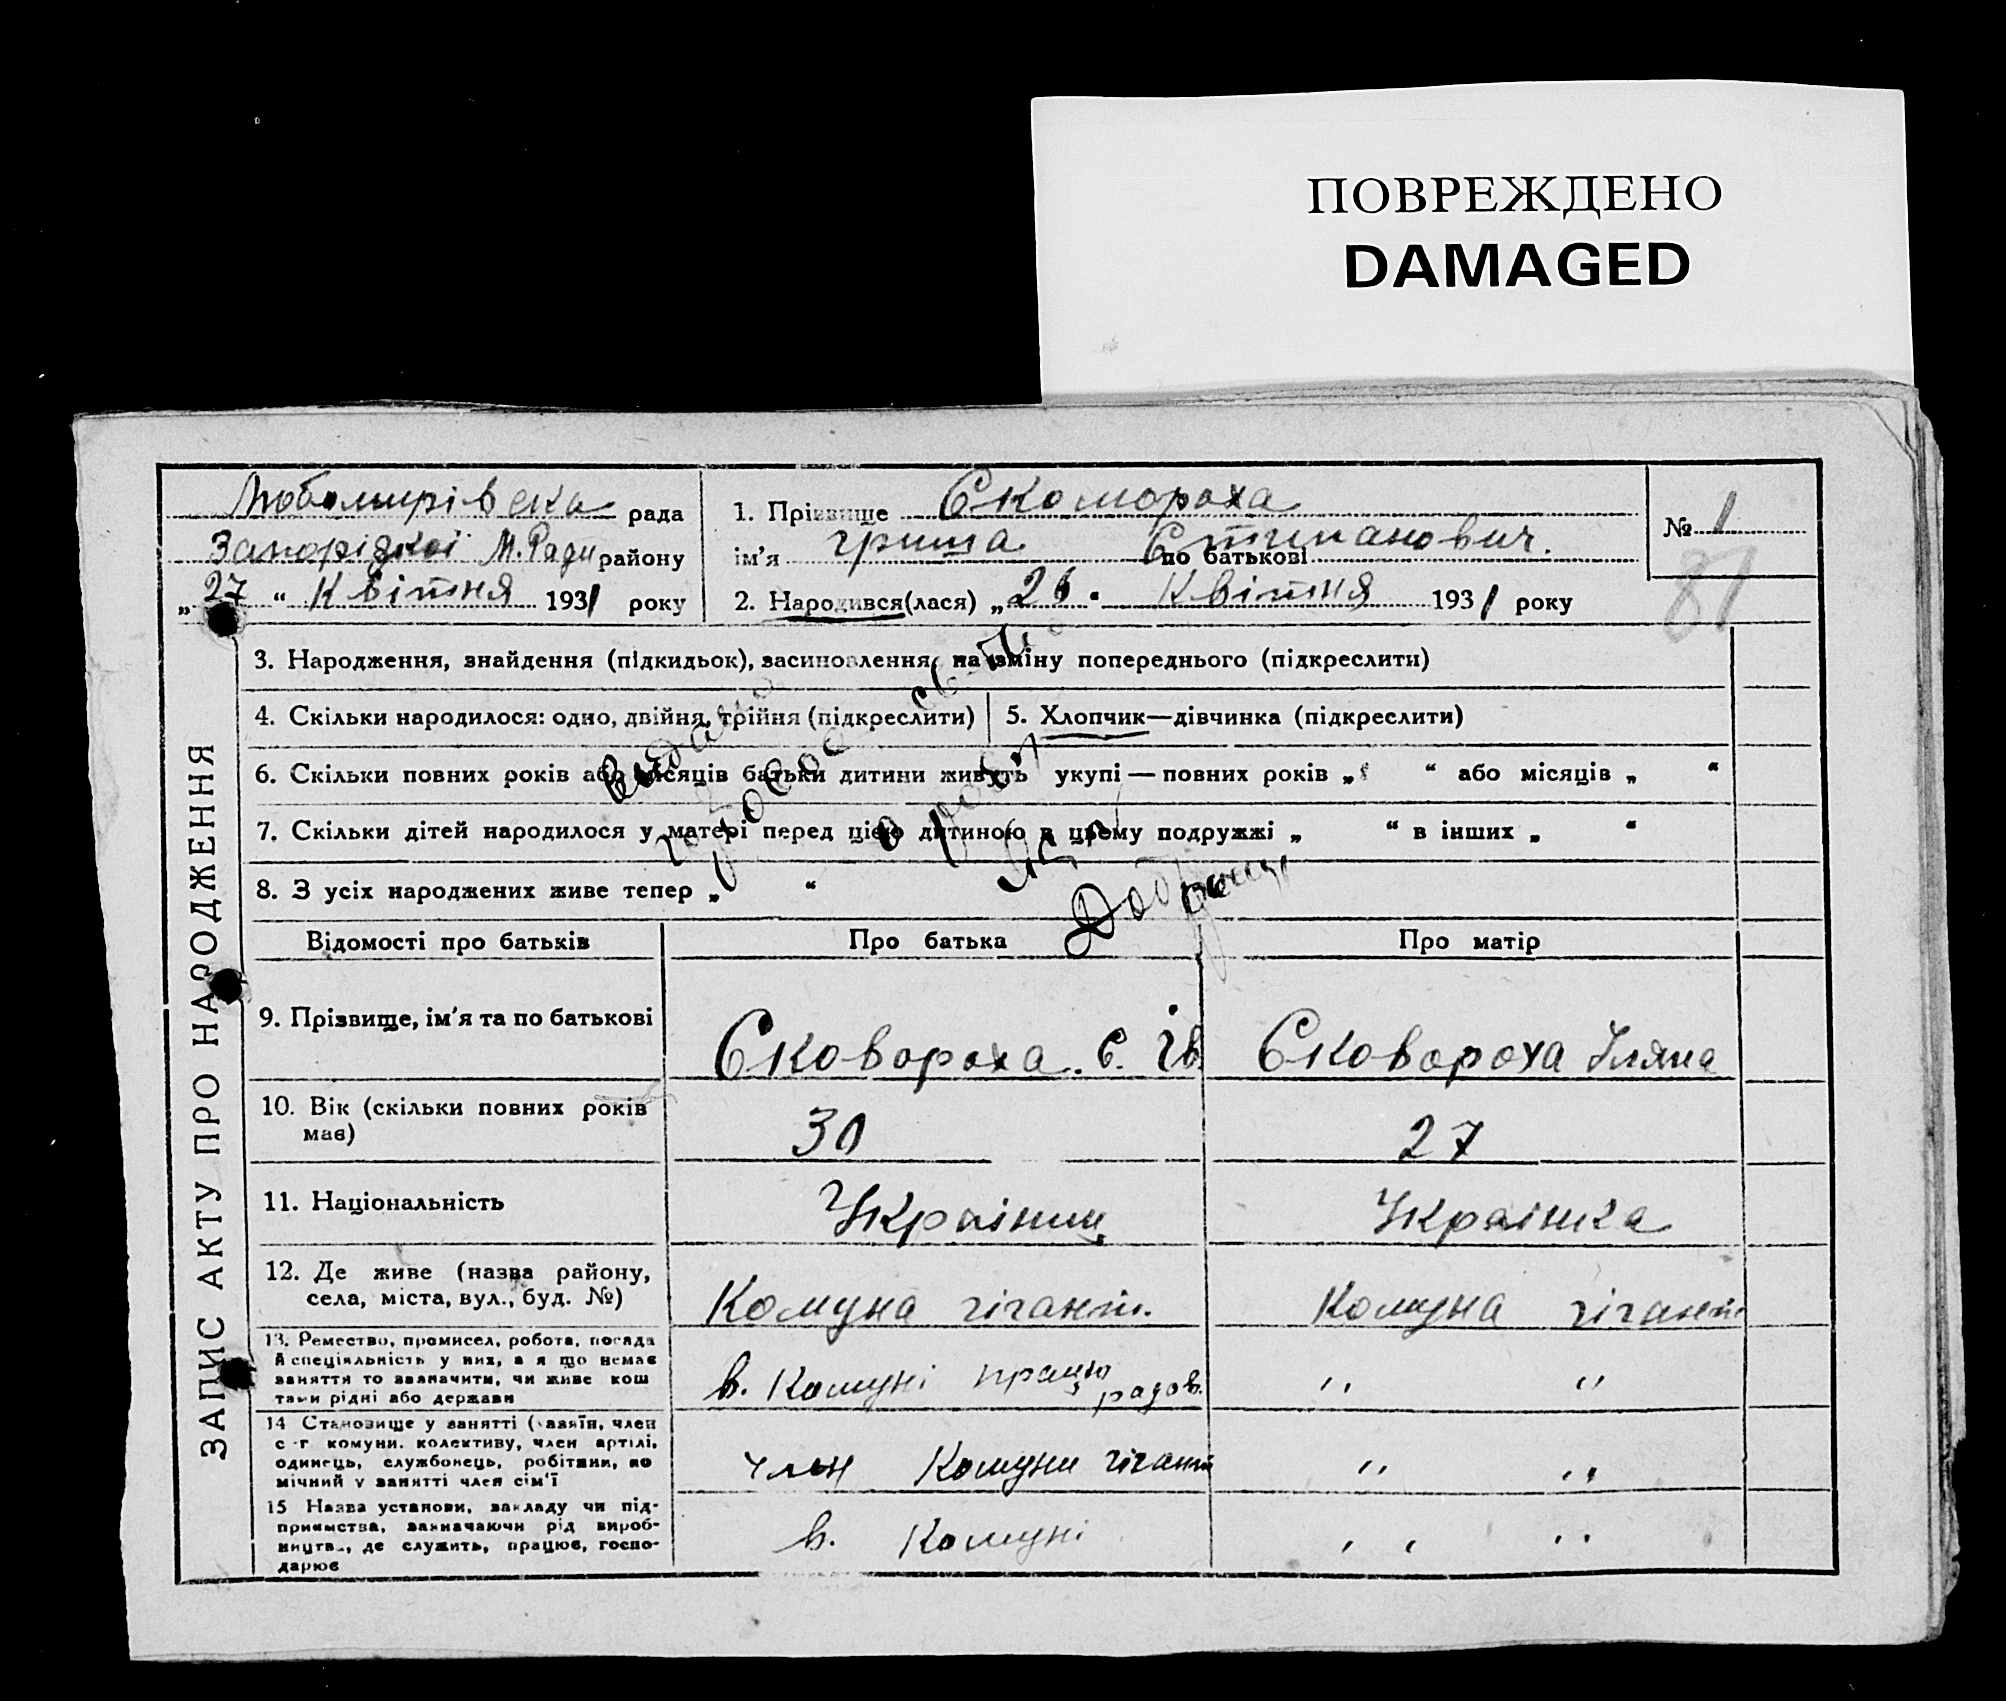 ПОВРЕЖДЕНО
DAMAGED
Любомирівська рада
Запорізької М. Ради району
„27“ Квітня 1931 року
1. Прізвище Скомороха
ім'я Гриша по батькові Степанович.
2. Народився(лася) „26“ Квітня 1931 року
№ 1
81
3. Народження, знайдення (підкидьок), засиновлення, на зміну попереднього (підкреслити)
4. Скільки народилося: одно, двійня, трійня (підкреслити)
5. Хлопчик—дівчинка (підкреслити)
6. Скільки повних років або місяців батьки дитини живуть укупі — повних років „ “ або місяців „ “
7. Скільки дітей народилося у матері перед цією дитиною в цьому подружжі „ “ в інших „ “
8. З усіх народжених живе тепер „ “
Видано
ЗАПИС АКТУ ПРО НАРОДЖЕННЯ
Відомості про батьків Про батька Про матір
9. Прізвище, ім'я та по батькові Сковороха. С. Ів. Сковороха Уляна
10. Вік (скільки повних років має) 30 27
11. Національність Україниц Українка
12. Де живе (назва району, села, міста, вул., буд. №) Комуна гігант. Комуна гігант
13. Ремество, промисел, робота, посада
й спеціяльність у них, а я що немає
заняття то зазначити, чи живе кош
тами рідні або держави
в. Комуні працю рядов. " "
14 Становище у занятті (хазяїн, член
с-г комуни, колективу, член артілі,
одинець, службовець, робітник, по
мічний у занятті член сім'ї
член Комуни гігант " "
15 Назва установи, закладу чи під-
приємства, зазначаючи рід вироб-
ництва, де служить, працює, госпо-
дарює
в. Комуні " "